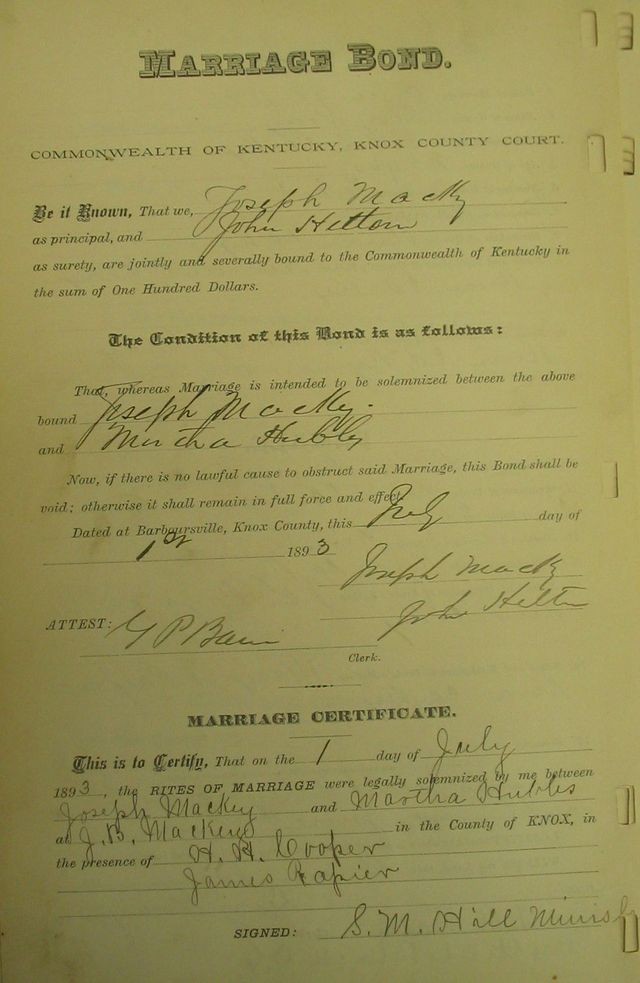 MARRIAGE BOND.
COMMONWEALTH OF KENTUCKY, KNOX COUNTY COURT.
Be it Known, That we, Joseph Macky
as principal, and John Helton
as surety, are jointly and severally bound to the Commonwealth of Kentucky in
the sum of One Hundred Dollars.
The Condition of this Bond is as follows:
That, whereas Marriage is intended to be solemnized between the above
bound Joseph Macky.
and Martha Hubbs
Now, if there is no lawful cause to obstruct said Marriage, this Bond shall be
void; otherwise it shall remain in full force and effect.
Dated at Barboursville, Knox County, this July day of
1st 1893
Joseph Macky
John Helton
ATTEST: G P Bain
Clerk.
MARRIAGE CERTIFICATE.
This is to Certify, That on the 1 day of July
1893, the RITES OF MARRIAGE were legally solemnized by me between
Joseph Mackey and Martha Hubbs
at J. B. Mackeys in the County of KNOX, in
the presence of H. H. Cooper
James Rapier
SIGNED: S. M. Hall Minis